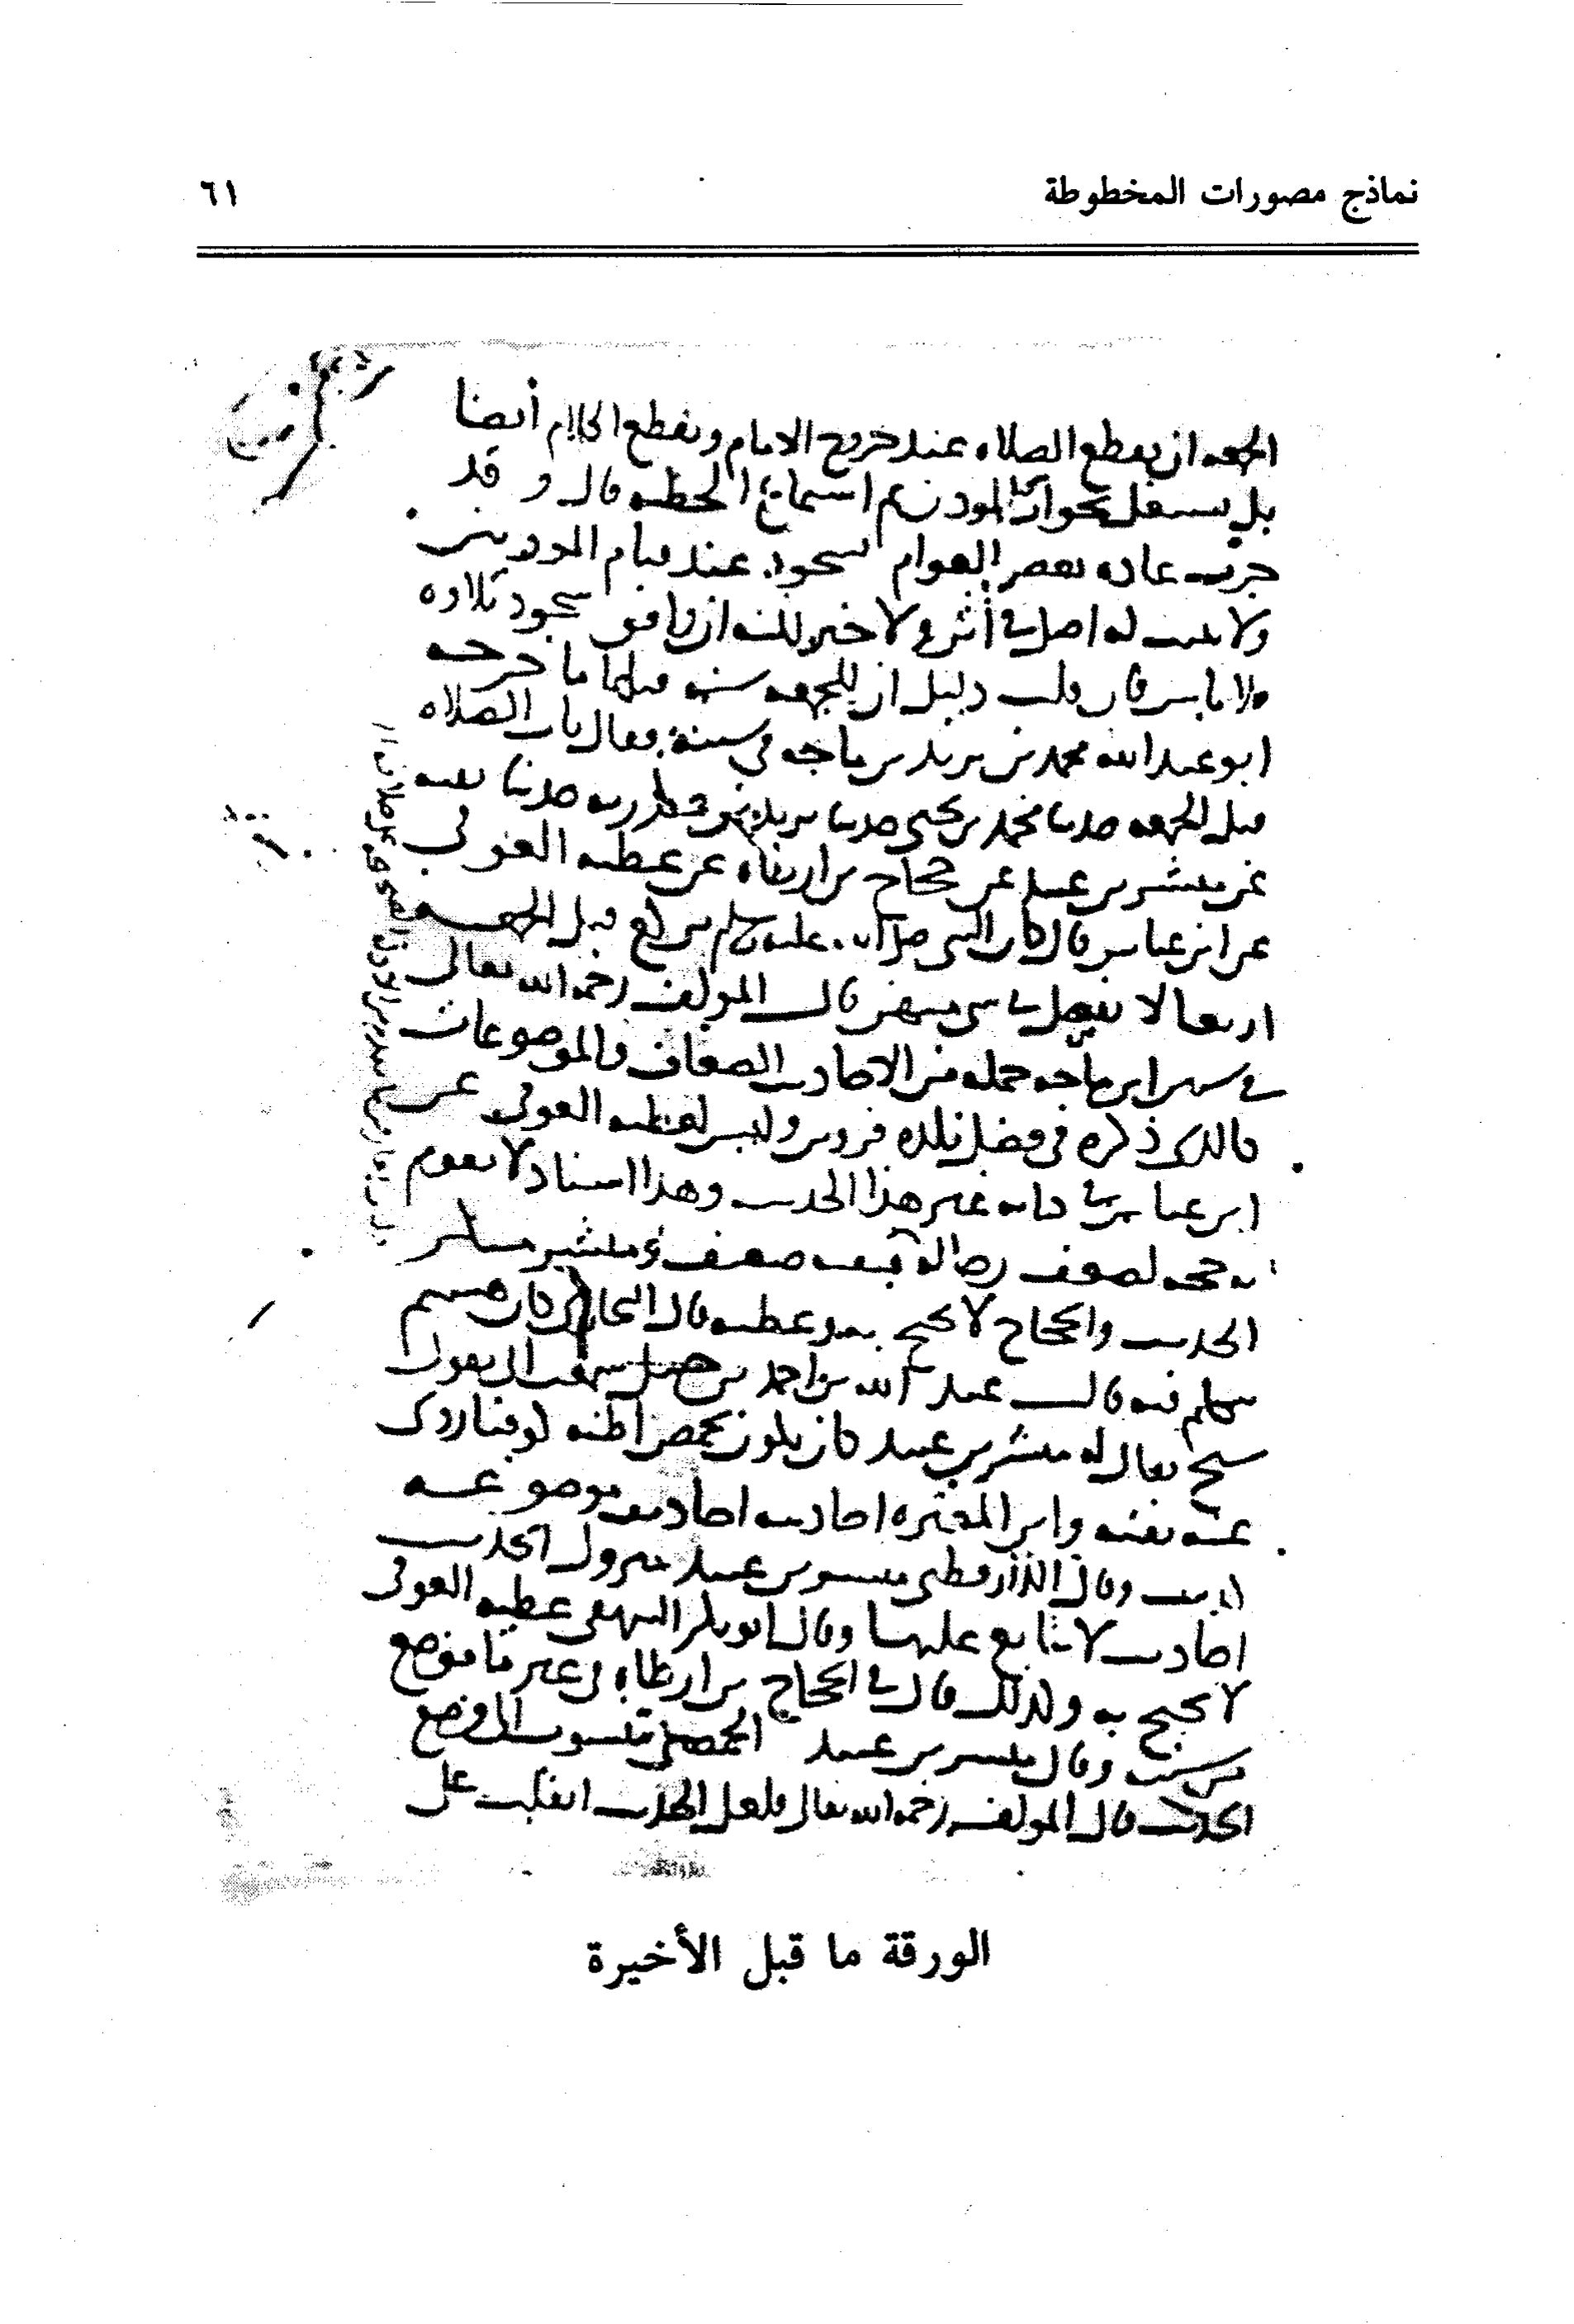 نماذج مصورات المخطوطة
٦١
الجمعه ان يقطع الصلاه عند خروج الامام ويقطع الكلام أيضا
بل يشتغل بجواب المودن ثم استماع الخطبه قال و قد
جرت عاده بعض العوام لسجود عند قيام المودنين
ولا يثبت له اصل في أثر ولا خبر لكنه ان وافق سجود تلاوه
فلا باس قلت دليل ان للجمعه سنه قبلها ما خرجه
ابو عبد الله محمد بن يزيد بن ماجه في سننه فقال باب الصلاه
قبل الجمعه حدثنا محمد بن يحيى حدثنا يزيد بن عبد ربه حدثنا بقيه
عن مبشر بن عبيد عن حجاج بن ارطاه عن عطيه العوفي
عن ابن عباس قال كان النبي صلى الله عليه وسلم يركع قبل الجمعه
اربعا لا يفصل في شي منهن قال المولف رحمه الله تعالى
في سنن ابن ماجه جمله من الاحاديث الضعاف والموضوعات
كالذي ذكره في فضل بلده قزوين وليس لعطيه العوفي عن
ابن عباس في كتابه غير هذا الحديث وهذا اسناد لا تقوم
به حجه لضعف رجاله بقيه ضعيف ومبشر منكر
الحديث والحجاج لا يحتج به وعطيه قال البخاري كان هشيم
يتكلم فيه قال عبد الله بن احمد بن حنبل سمعت ابي يقول
شيخ يقال له مبشر بن عبيد كان يكون بحمص اظنه كوفيا روى
عنه بقيه وابو المغيره احاديثه احاديث موضوعه
كذب وقال الدارقطني مبشر بن عبيد متروك الحديث
احاديثه لا يتابع عليها وقال ابو بكر البيهقي عطيه العوفي
لا يحتج به وكذلك قال في الحجاج بن ارطاه في غير ما موضع
من سننه وقال مبشر بن عبيد الحمصي منسوب الى وضع
الحديث قال المولف رحمه الله تعالى ولعل الحديث انقلب على
الورقة ما قبل الأخيرة